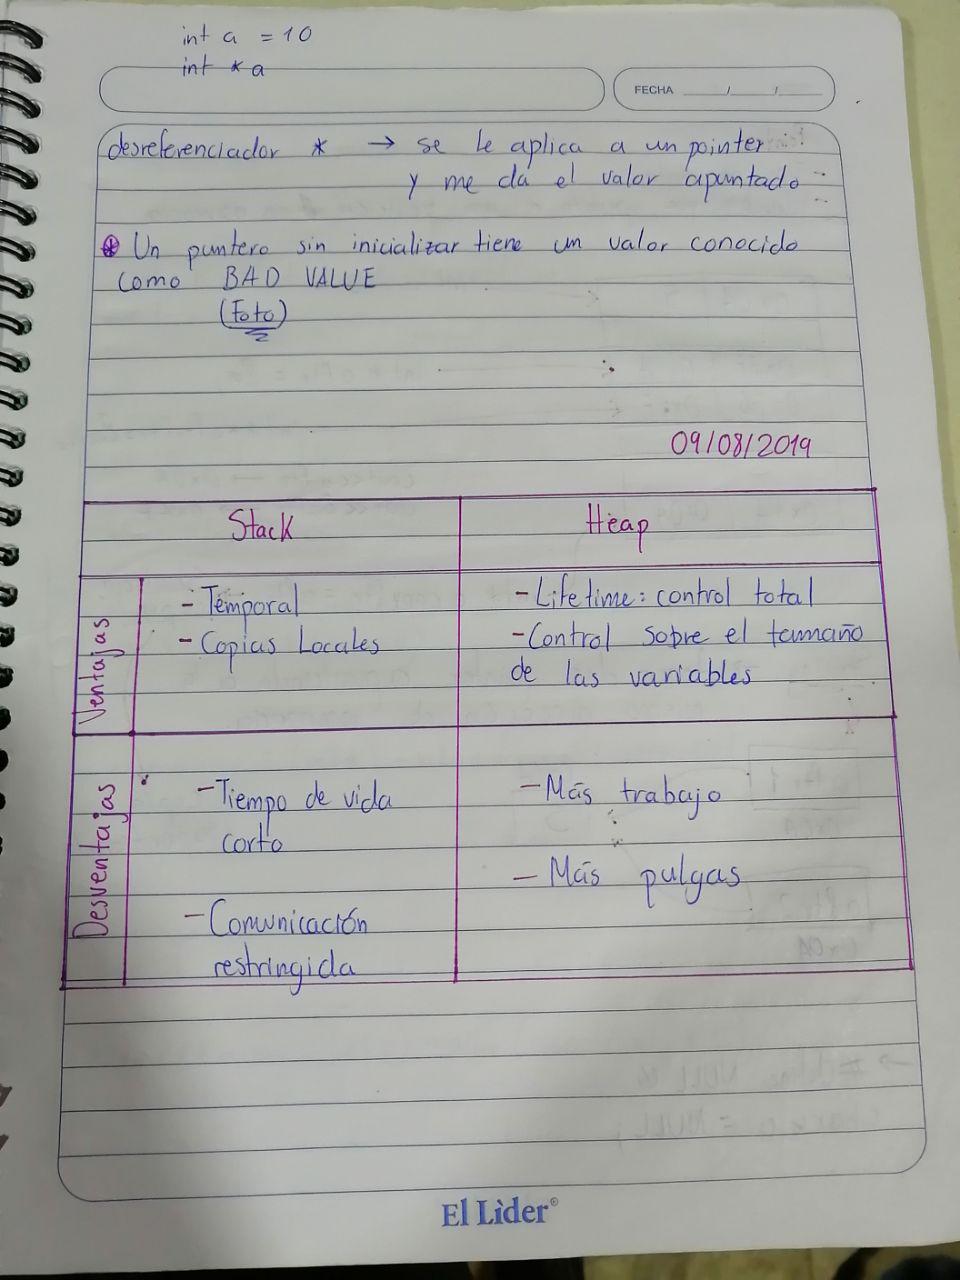 int a = 10
int * a
FECHA / /
desreferenciador * → se le aplica a un pointer
y me da el valor apuntado
* Un puntero sin inicializar tiene un valor conocido
como BAD VALUE
(Foto)
09/08/2019
Stack
Heap
Ventajas
- Temporal
- Copias Locales
- Lifetime: control total
- Control sobre el tamaño
de las variables
Desventajas
- Tiempo de vida
corto
- Comunicación
restringida
- Más trabajo
- Más pulgas
El Lider®